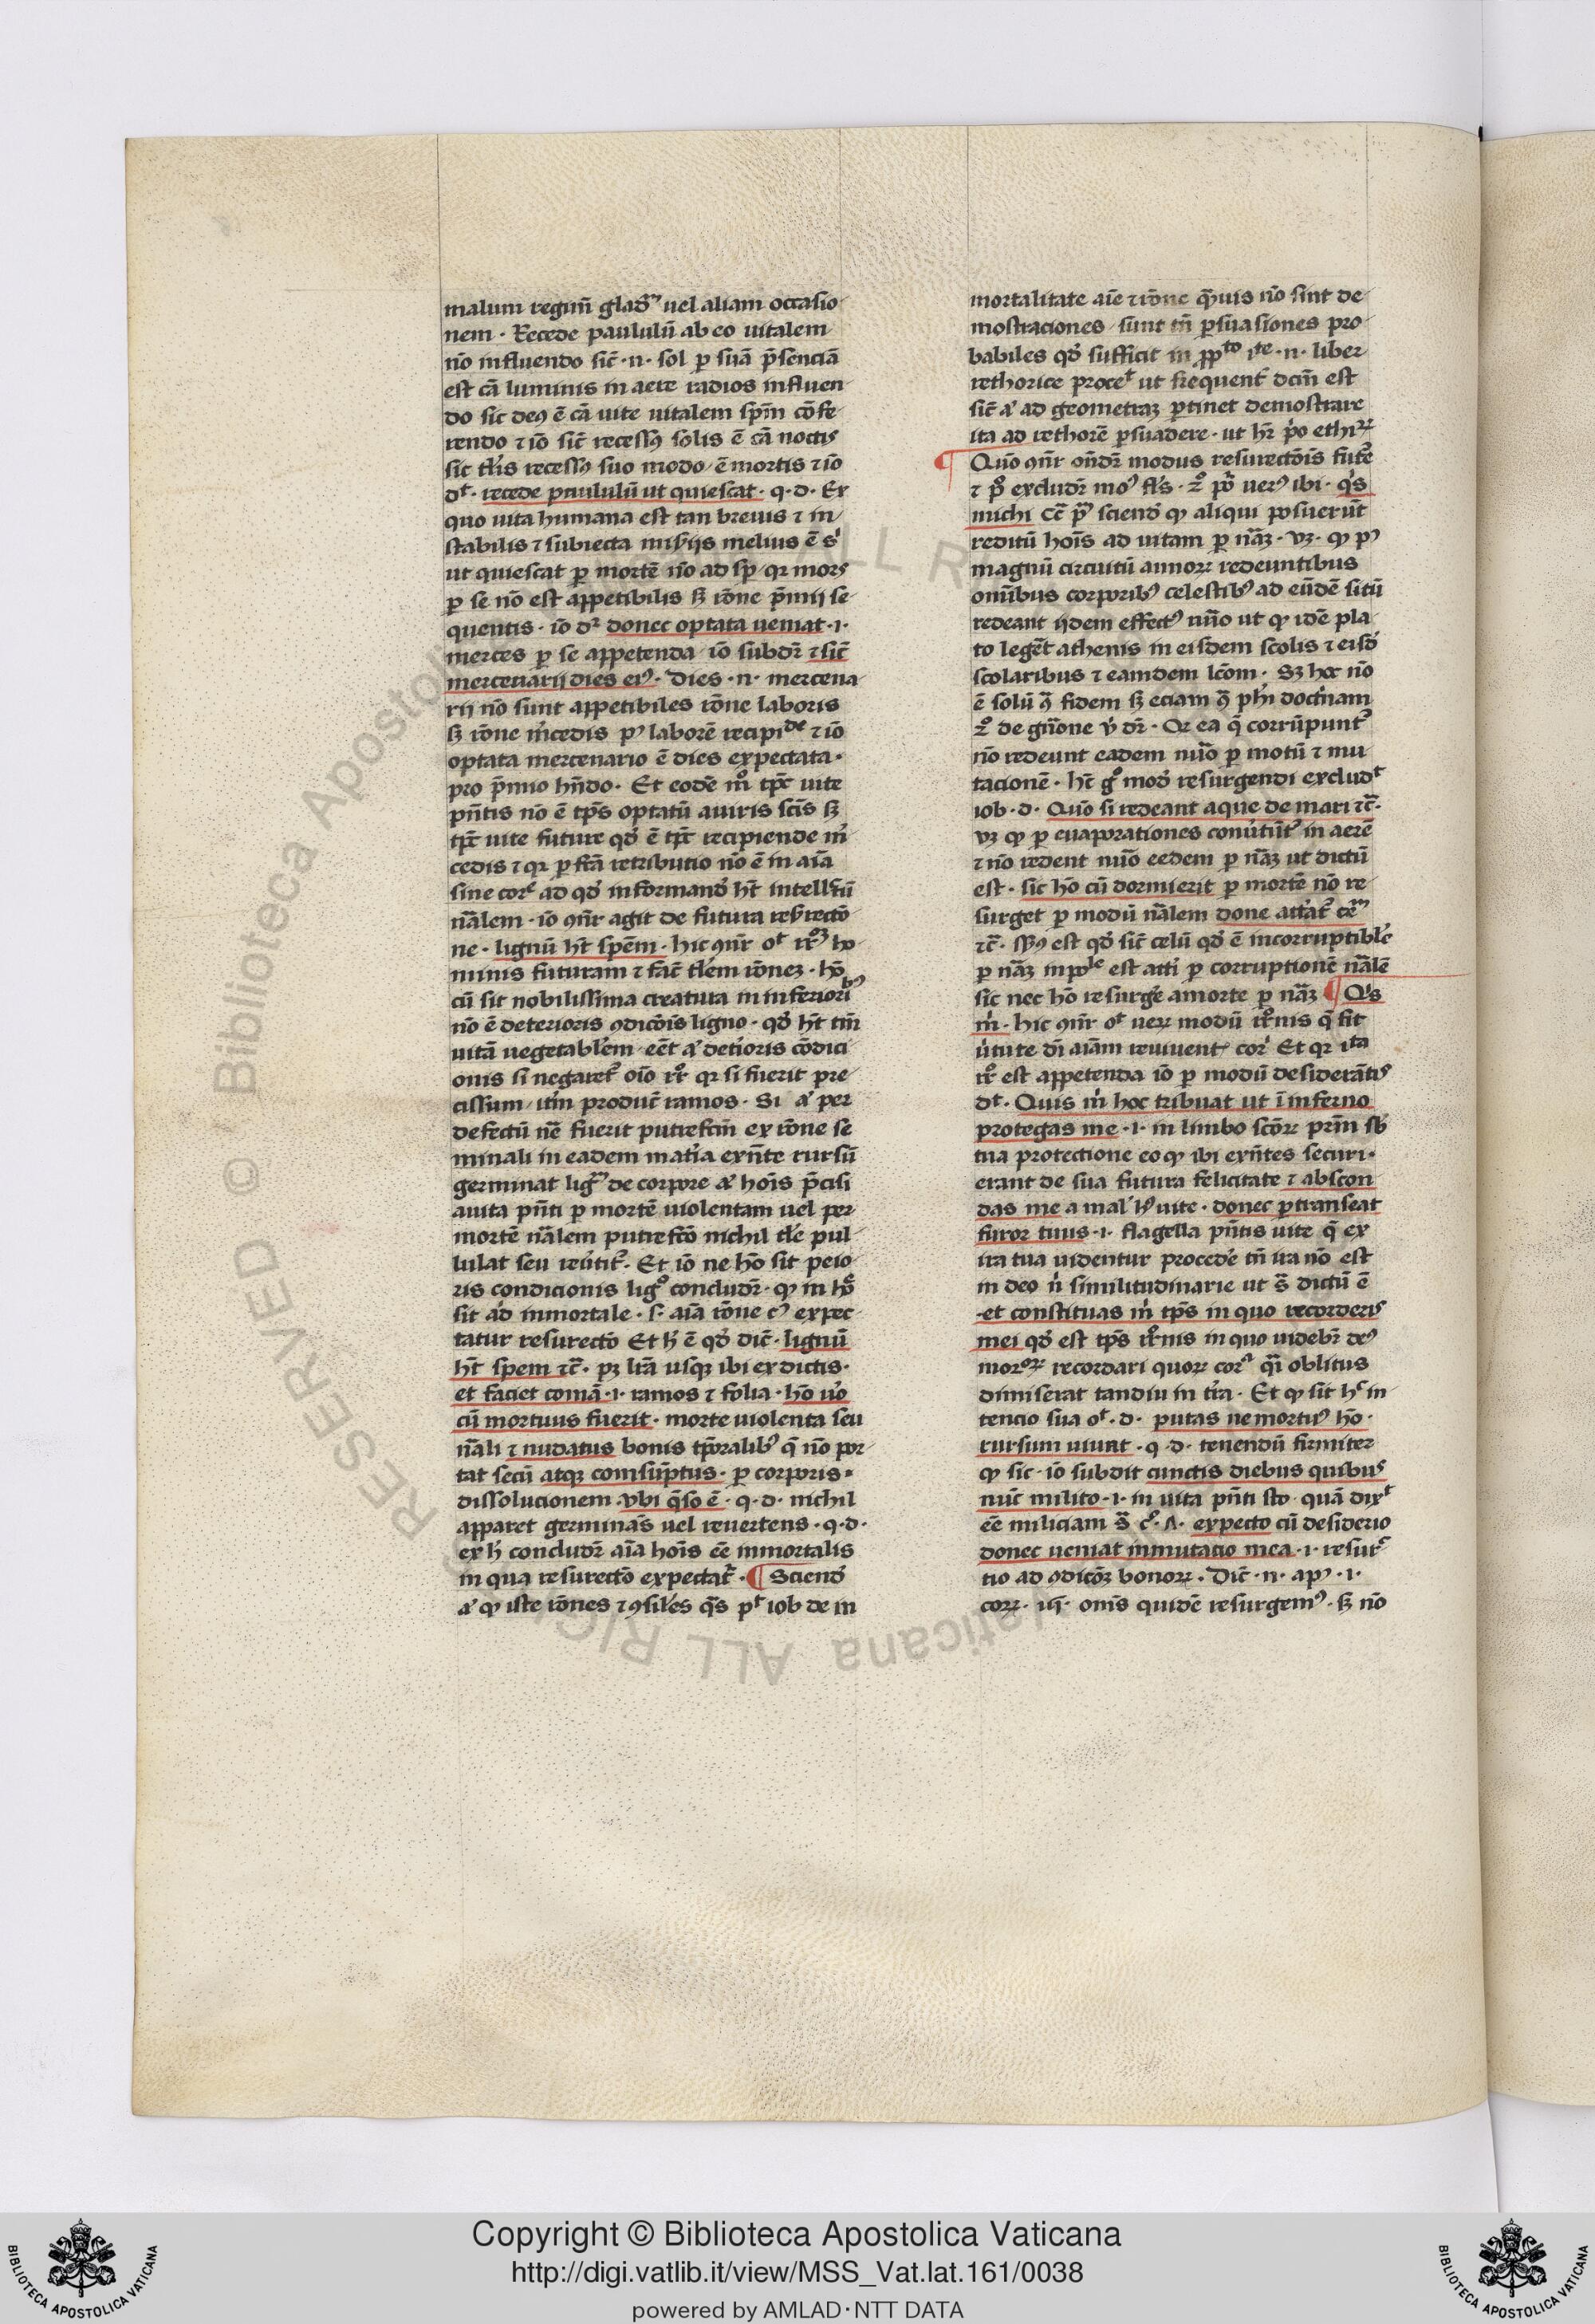 malum regim̄ gladꝰ uel aliam occasio
nem · Recede paululū ab eo uitalem
nō influendo sic̄ · n · sol ꝑ suā p̄senciā
est cā luminis in aere radios influen
do sic deꝯ ē cā uite uitalem sp̄m cōfe
rendo ⁊ iō sic̄ recessꝯ solis ē cā noctis
sic recessꝯ suo modo ē mortis ⁊ iō
dt · recede paululū ut quiescat · q · d · Ex
quo uita humana est tan breuis ⁊ in
stabilis ⁊ subiecta melius ē
ut quiescat ꝑ mortē nō ad sp̄ qꝛ mors
ꝑ se nō est appetibilis sꝫ rōne p̄mij se
quentis · iō dꝛ donec optata ueniat · i ·
merces ꝑ se appetenda iō subdr̄ ⁊ sic̄
mercenarij dies eiꝰ · dies · n · mercena
rij nō sunt appetibiles rōne laboris
sꝫ rōne m̄cedis pꝰ laborē recipide ⁊ iō
optata mercenario ē dies expectata ·
pro p̄mio hn̄do · Et eodē mo tꝑe uite
pn̄tis nō ē tp̄s optatū auiris scīs sꝫ
tꝑe uite future qd̓ ē tꝑe recipiende m̄
cedis ⁊ qꝛ retributio nō ē in aīa
sine cor̄ ad qd̓ informand̓ ht̄ intellm̄
nālem · iō ꝯnr̄ agit de futura resrectō
ne · lignū ht̄ spēm · hic ꝯnr̄ ot ho
minis futuram ⁊ fac̄ rōneꝫ · hō
cū sit nobilissima creatura in inferiorib
nō ē deterioris ꝯdicōis ligno · qd̓ ht̄ tm̄
uitā uegetablem eēt detioris cōdici
onis si negaret oīo qꝛ si fuerit pre
cissum itm̄ produc̄ ramos · Si per
defectū fuerit putrefcm̄ ex rōne se
minali in eadem matia exn̄te rursū
germinat de corpore hoīs p̄cisi
auita pn̄ti ꝑ mortē uiolentam uel per
mortē nālem putrefcō nichil pul
lulat seu · Et iō ne hō sit peio
ris condicionis ligo concludr̄ · ꝙ in
sit immortale · s · aīa rōne cꝰ expec
tatur resurectō Et h̄ ē qd̓ dic̄ · lignū
ht̄ spem ⁊c̄ · pꝫ lrā usqꝫ ibi ex dictis ·
et faciet comā · i · ramos ⁊ folia · hō uo
cū mortuus fuerit · morte uiolenta seu
nāli ⁊ nudatus bonis tꝑralibꝰ q̄ nō por
tat secū atqꝫ comsūptus · ꝑ corporis
dissolucionem · vbi q̄so ē · q · d · nichil
apparet germinās uel reuertens · q · d ·
ex h̄ concludr̄ aīa hoīs eē immortalis
in qua resurectō expectat̄ · ¶ Sciend̓
ꝙ iste rōnes ⁊ ꝯsiles q̄s pt iob de in
mortalitate aīe ⁊ rōne q̄uis nō sint de
mostraciones sunt tn̄ ꝑsuasiones pro
babiles qd̓ sufficit in · n · liber
rethorice procet ut frequent̄ dcm̄ est
sic̄ ad geometraꝫ ꝑtinet demostrare
ita ad rethorē ꝑsuadere · ut hr̄ po ethiꝝ
¶ Quō ꝯnr̄ ondr̄ modus resurectōis fut̄e
⁊ po excludr̄ moꝰ · 2o uerꝰ ibi · qs
michi Cc̄ sciend̓ ꝙ aliqui posuerūt
reditū hoīs ad uitam ꝑ nāꝫ · vꝫ · ꝙ pꝰ
magnū circuitū annoꝝ redeuntibus
omībus corporibꝰ celestibꝰ ad eūdē sitū
redeant ijdem effectꝰ nūo ut ꝙ idē pla
to leget̄ athenis in eisdem scolis ⁊ eisd̓
scolaribus ⁊ eamdem lcōm · Sꝫ hoc nō
ē solū fidem sꝫ eciam phi doctnam
2o de gn̄one dr̄ · Qꝛ ea q̄ corrūpunt
nō redeunt eadem nūo ꝑ motū ⁊ mu
tacionē · hc̄ go mod̓ resurgendi excludt
iob · d · Quō si redeant aque de mari ⁊c̄ ·
vꝫ ꝙ ꝑ euaporationes conutūt in aerē
⁊ nō redent nūo eedem ꝑ nāꝫ ut dictū
est · sic hō cū dormierit ꝑ mortē nō re
surget ꝑ modū nālem done
⁊c̄ · est qd̓ sic̄ celū qd̓ ē incorruptible
ꝑ nāꝫ inpole est atti ꝑ corruptionē nālē
sic nec hō resurge amorte ꝑ nāꝫ ¶ Qs
m̄ · hic ꝯnr̄ ot ueꝝ modū q̄ fit
uitute di aīam reuiuent cor Et qꝛ ita
est appetenda iō ꝑ modū desiderātis
dt · Quis m̄ hoc tribuat ut ī inferno
protegas me · i · in limbo scōꝝ prm̄ sb
tua protectione eo ꝙ ibi exn̄tes securi ·
erant de sua futura felicitate ⁊ abscon
das me a mal uite · donec ꝑtranseat
furor tuus · i · flagella pn̄tis uite q̄ ex
ira tua uidentur procede tn̄ ira nō est
in deo similitudinarie ut s̄ dictū ē
et constituas m̄ tp̄s in quo recorderis
mei qd̓ est tp̄s in quo uidebr̄ deꝰ
recordari quoꝝ cora oblitus
dimiserat tandiu in tra · Et ꝙ sit hc in
tencio sua ot · d · putas ne mortuꝰ hō ·
rursum uiuat · q · d · tenendū firmiter
ꝙ sic · iō subdit cunctis diebus quibus
nūc milito · i · in uita pn̄ti sto · quā dixt
eē miliciam · expecto cū desiderio
donec ueniat inmutatio mea · i · resur
tio ad ꝯdicōꝫ bonoꝝ · Dic̄ · n · apꝰ · i ·
coꝝ · omīs quidē resurgemꝰ · sꝫ nō
Biblioteca Apostolica Vaticana ALL RIGHTS RESERVED ©
Copyright © Biblioteca Apostolica Vaticana
http://digi.vatlib.it/view/MSS_Vat.lat.161/0038
powered by AMLAD·NTT DATA
BIBLIOTECA APOSTOLICA VATICANA
BIBLIOTECA APOSTOLICA VATICANA